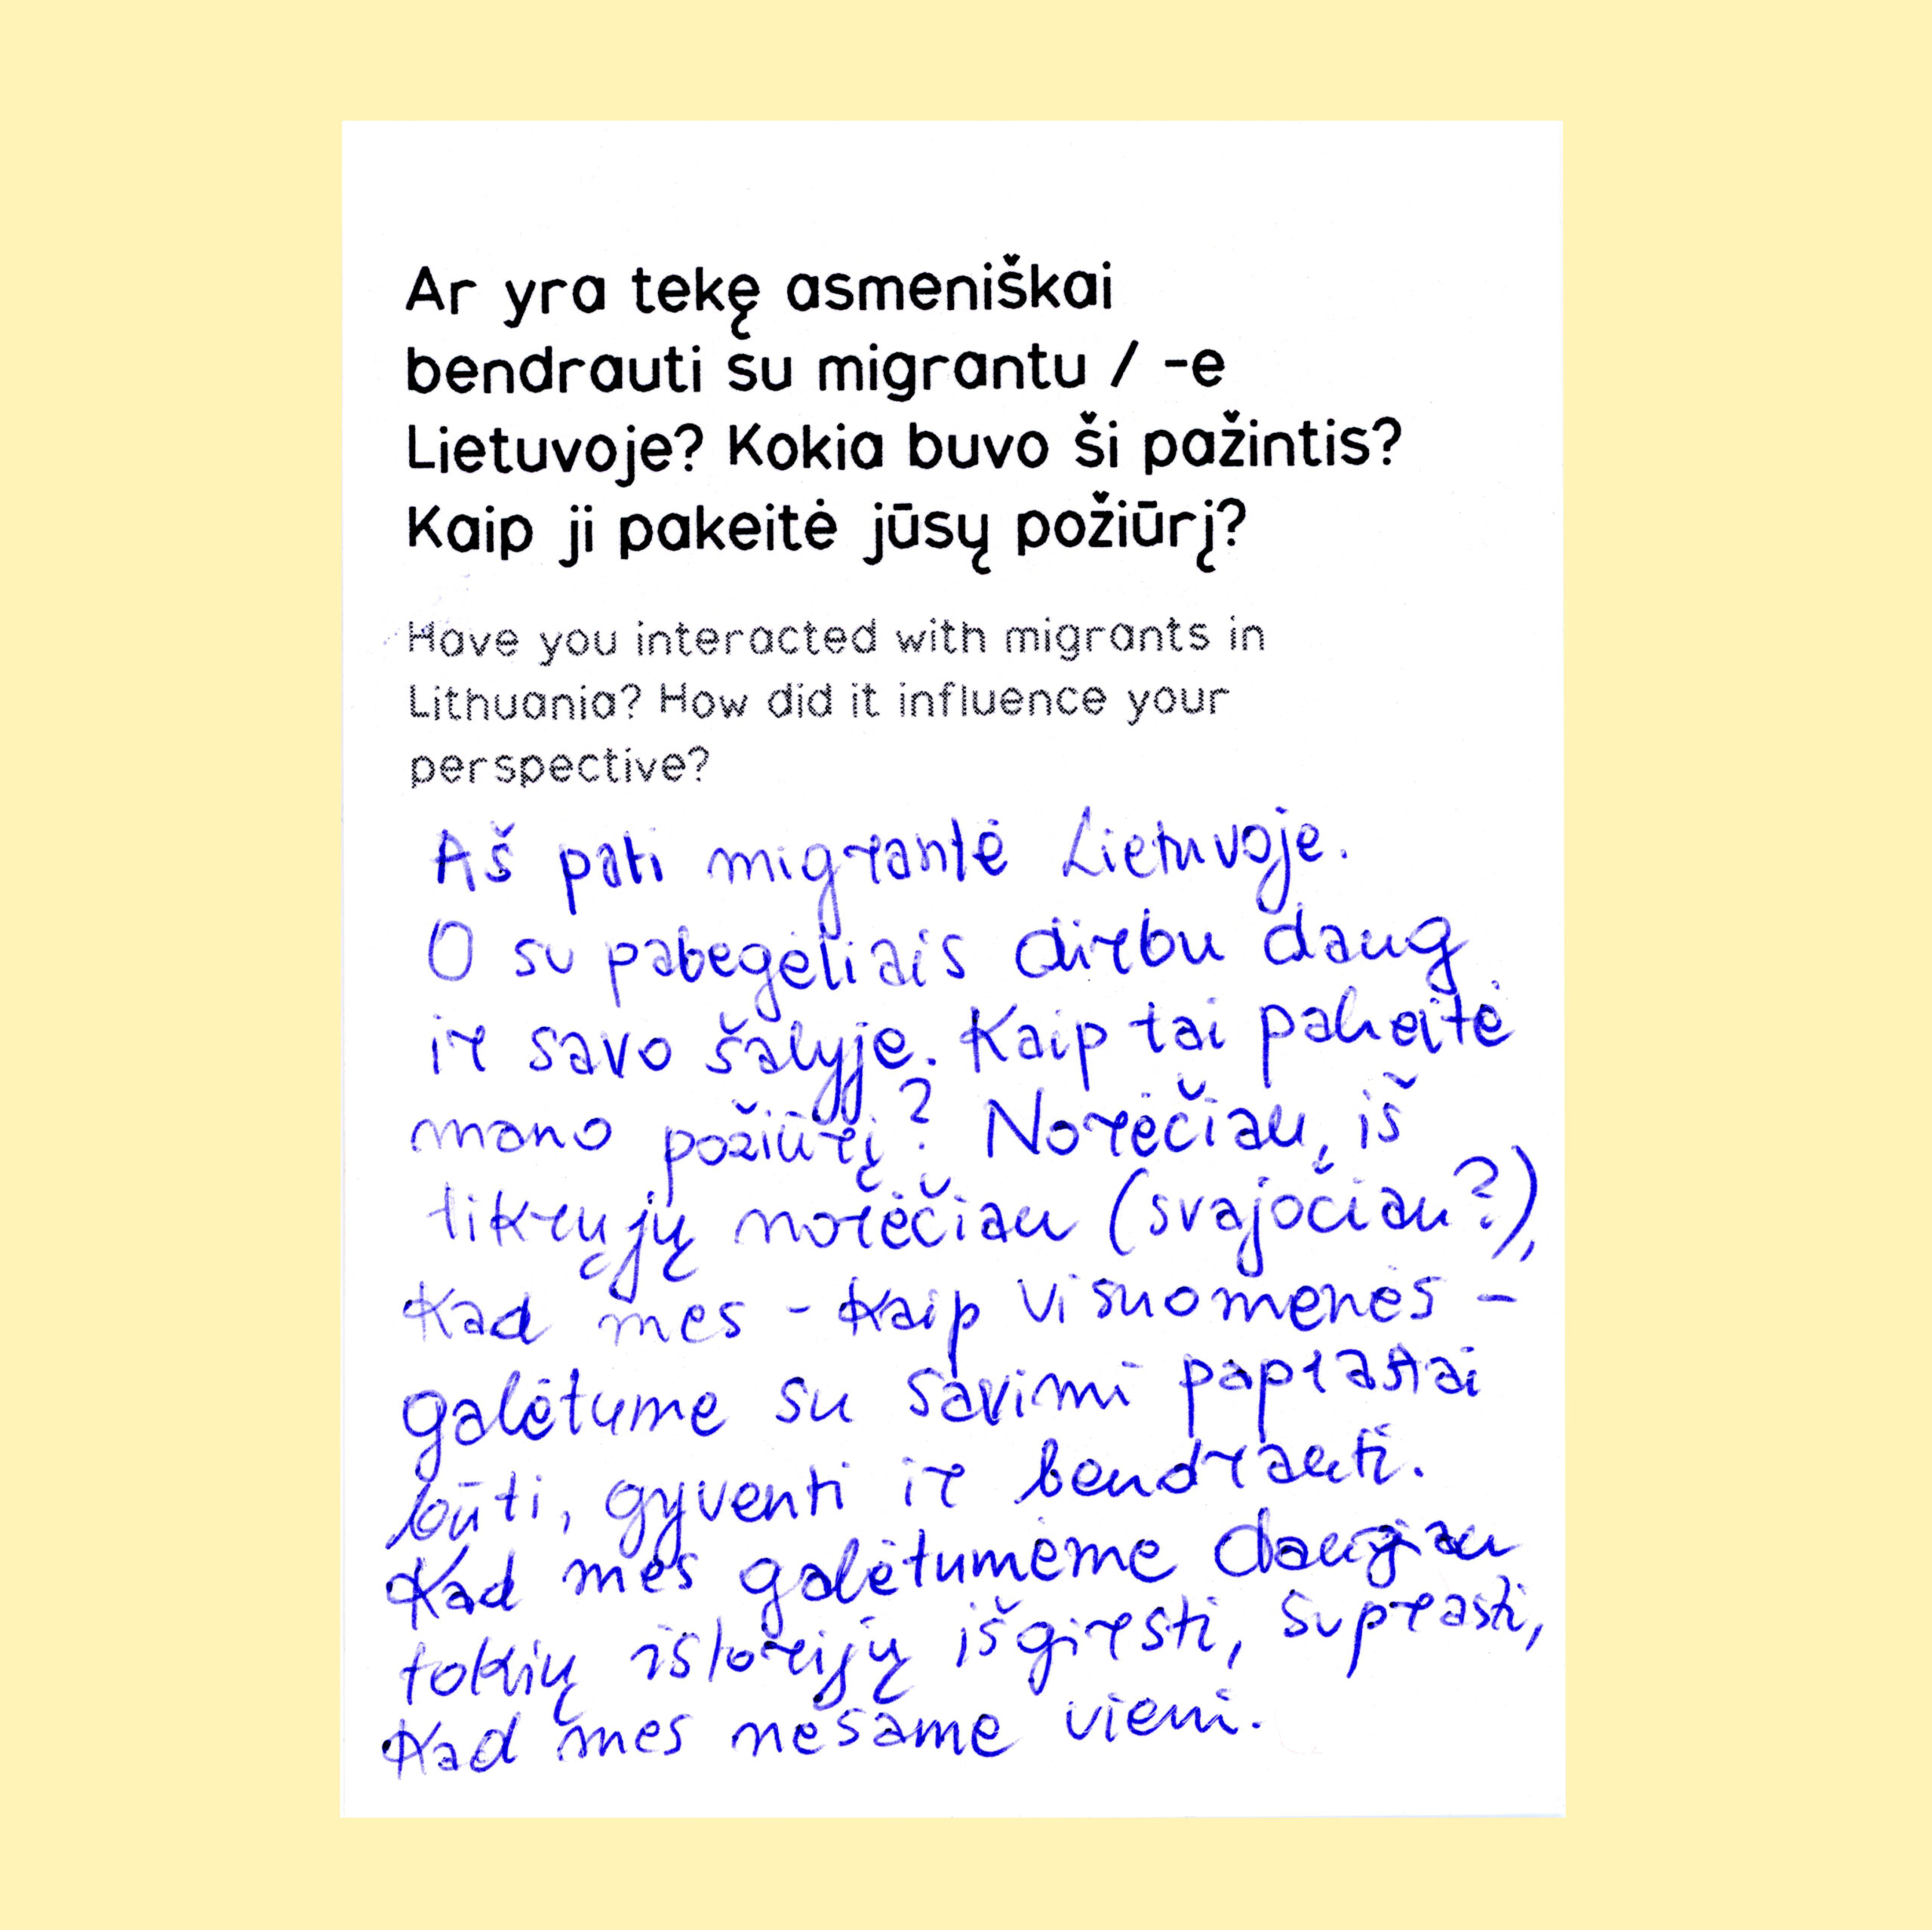 Ar yra tekę asmeniškai
bendrauti su migrantu / -e
Lietuvoje? Kokia buvo ši pažintis?
Kaip ji pakeitė jūsų požiūrį?
Have you interacted with migrants in
Lithuania? How did it influence your
perspective?
Aš pati migrantė Lietuvoje.
O su pabėgėliais dirbu daug
ir savo šalyje. Kaip tai pakeitė
mano požiūrį? Norėčiau, iš
tikrųjų norėčiau (svajočiau?),
kad mes - kaip visuomenės -
galėtume su savimi paprastai
būti, gyventi ir bendrauti.
Kad mes galėtumėme daugiau
tokių istorijų išgirsti, suprasti,
kad mes nesame vieni.